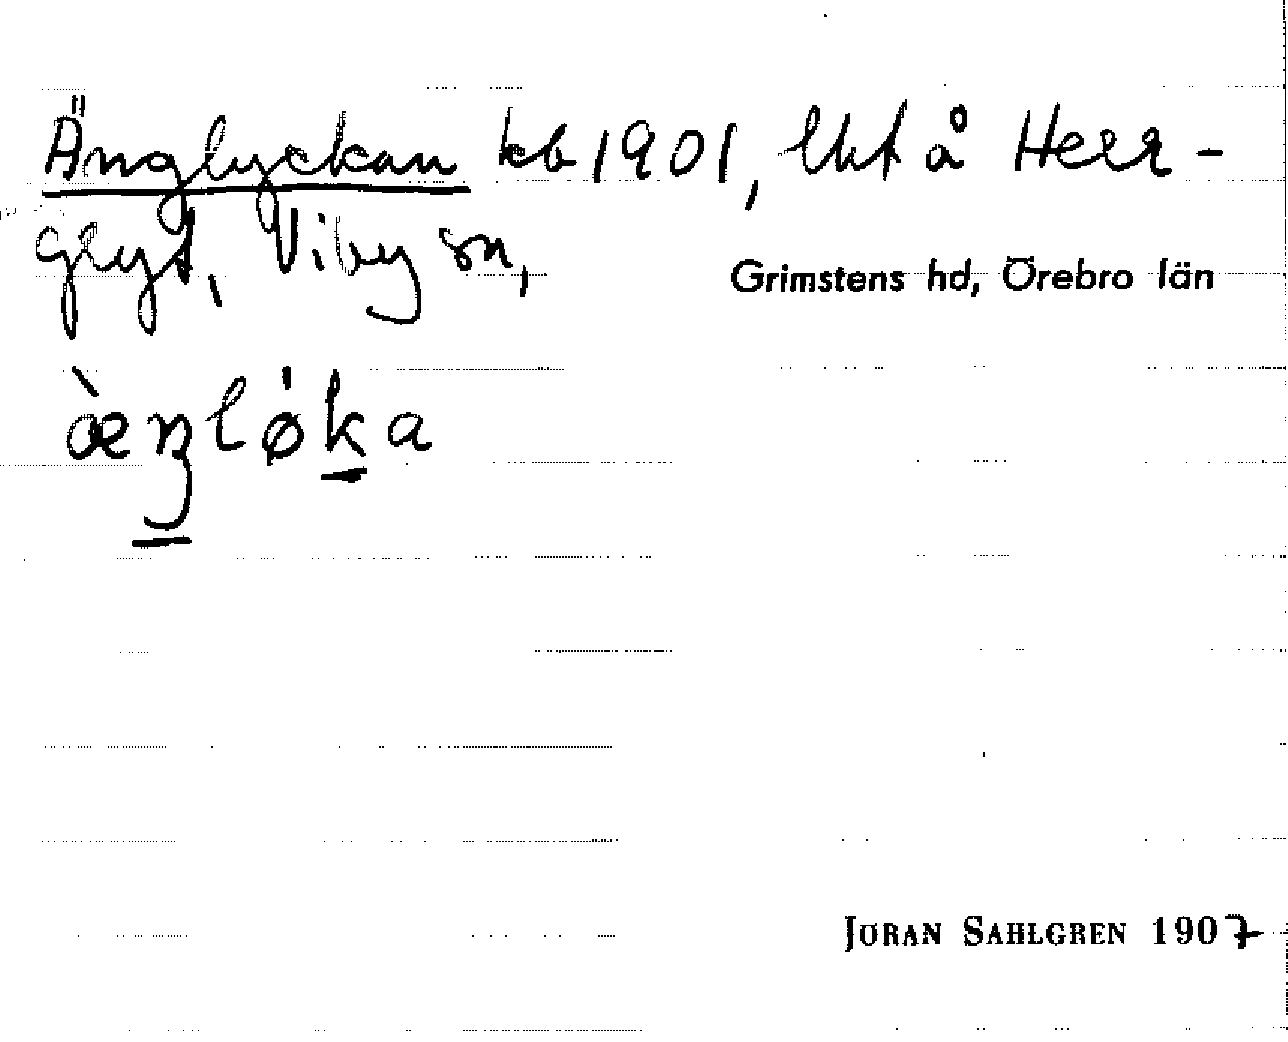 Änglyckan kb 1901, lht å Herr-
glyt, Viby sn,
Grimstens hd, Örebro län
æ̀ŋlø̍ka
JÖRAN SAHLGREN 1907